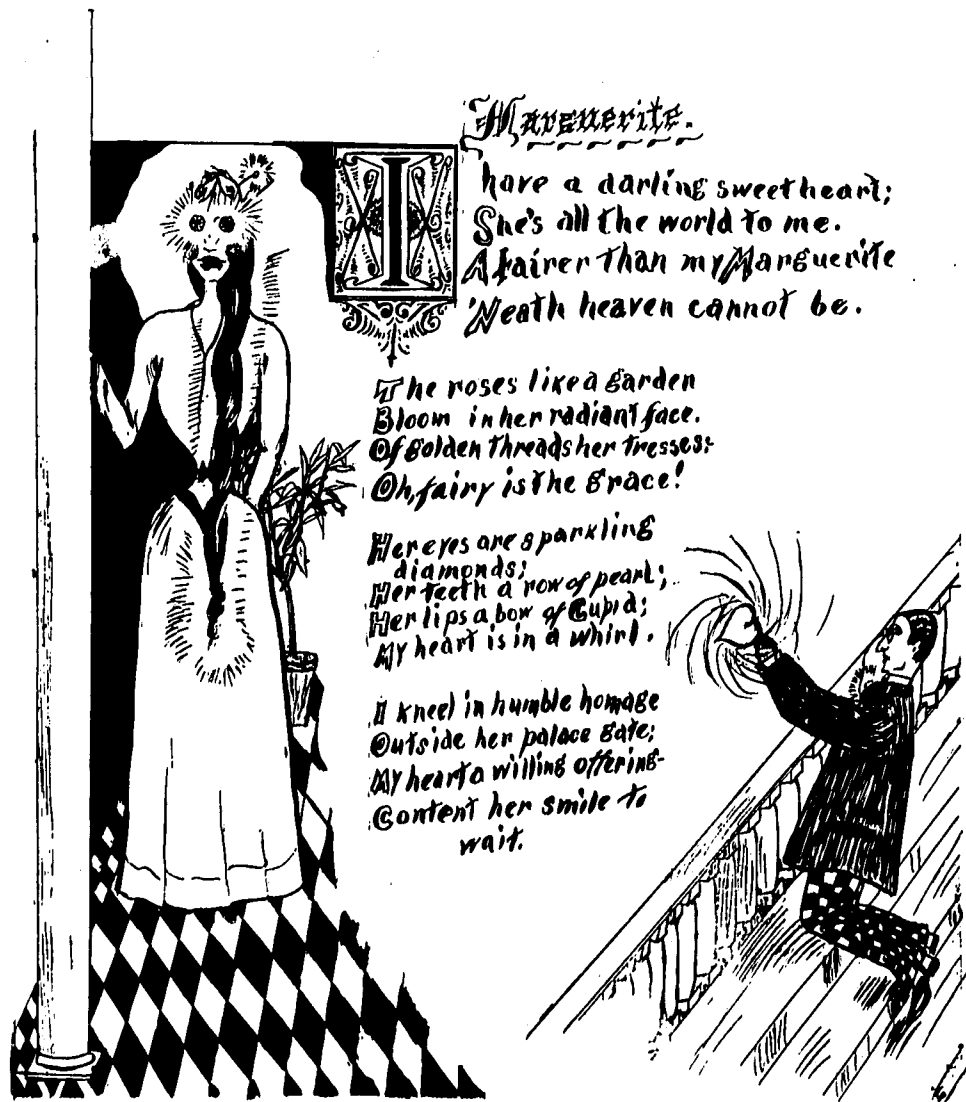 Marguerite.
I have a darling sweetheart;
She's all the world to me.
A fairer than my Marguerite
'Neath heaven cannot be.
The roses like a garden
Bloom in her radiant face.
Of golden threads her tresses:
Oh, fairy is the grace!
Her eyes are sparkling
diamonds;
Her teeth a row of pearl;
Her lips a bow of Cupid;
My heart is in a whirl.
I kneel in humble homage
Outside her palace gate;
My heart a willing offering-
Content her smile to
wait.